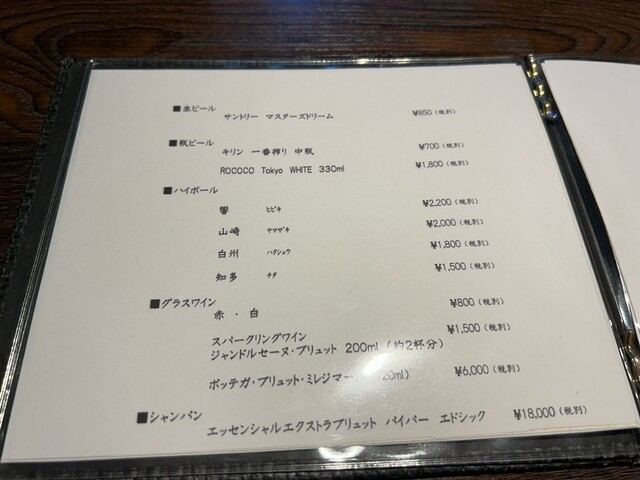 ■生ビール
サントリー マスターズドリーム ¥850(税別)
■瓶ビール
キリン 一番搾り 中瓶 ¥700(税別)
ROCOCO Tokyo WHITE 330ml ¥1,800(税別)
■ハイボール
響 ヒビキ ¥2,200(税別)
山崎 ヤマザキ ¥2,000(税別)
白州 ハクシュウ ¥1,800(税別)
知多 チタ ¥1,500(税別)
■グラスワイン
赤・白 ¥800(税別)
スパークリングワイン ¥1,500(税別)
ジャンドルセーヌ・ブリュット 200ml (約2杯分)
ボッテガ・ブリュット・ミレジマー 0ml) ¥6,000(税別)
■シャンパン
エッセンシャルエクストラブリュット パイパー エドシック ¥18,000(税別)